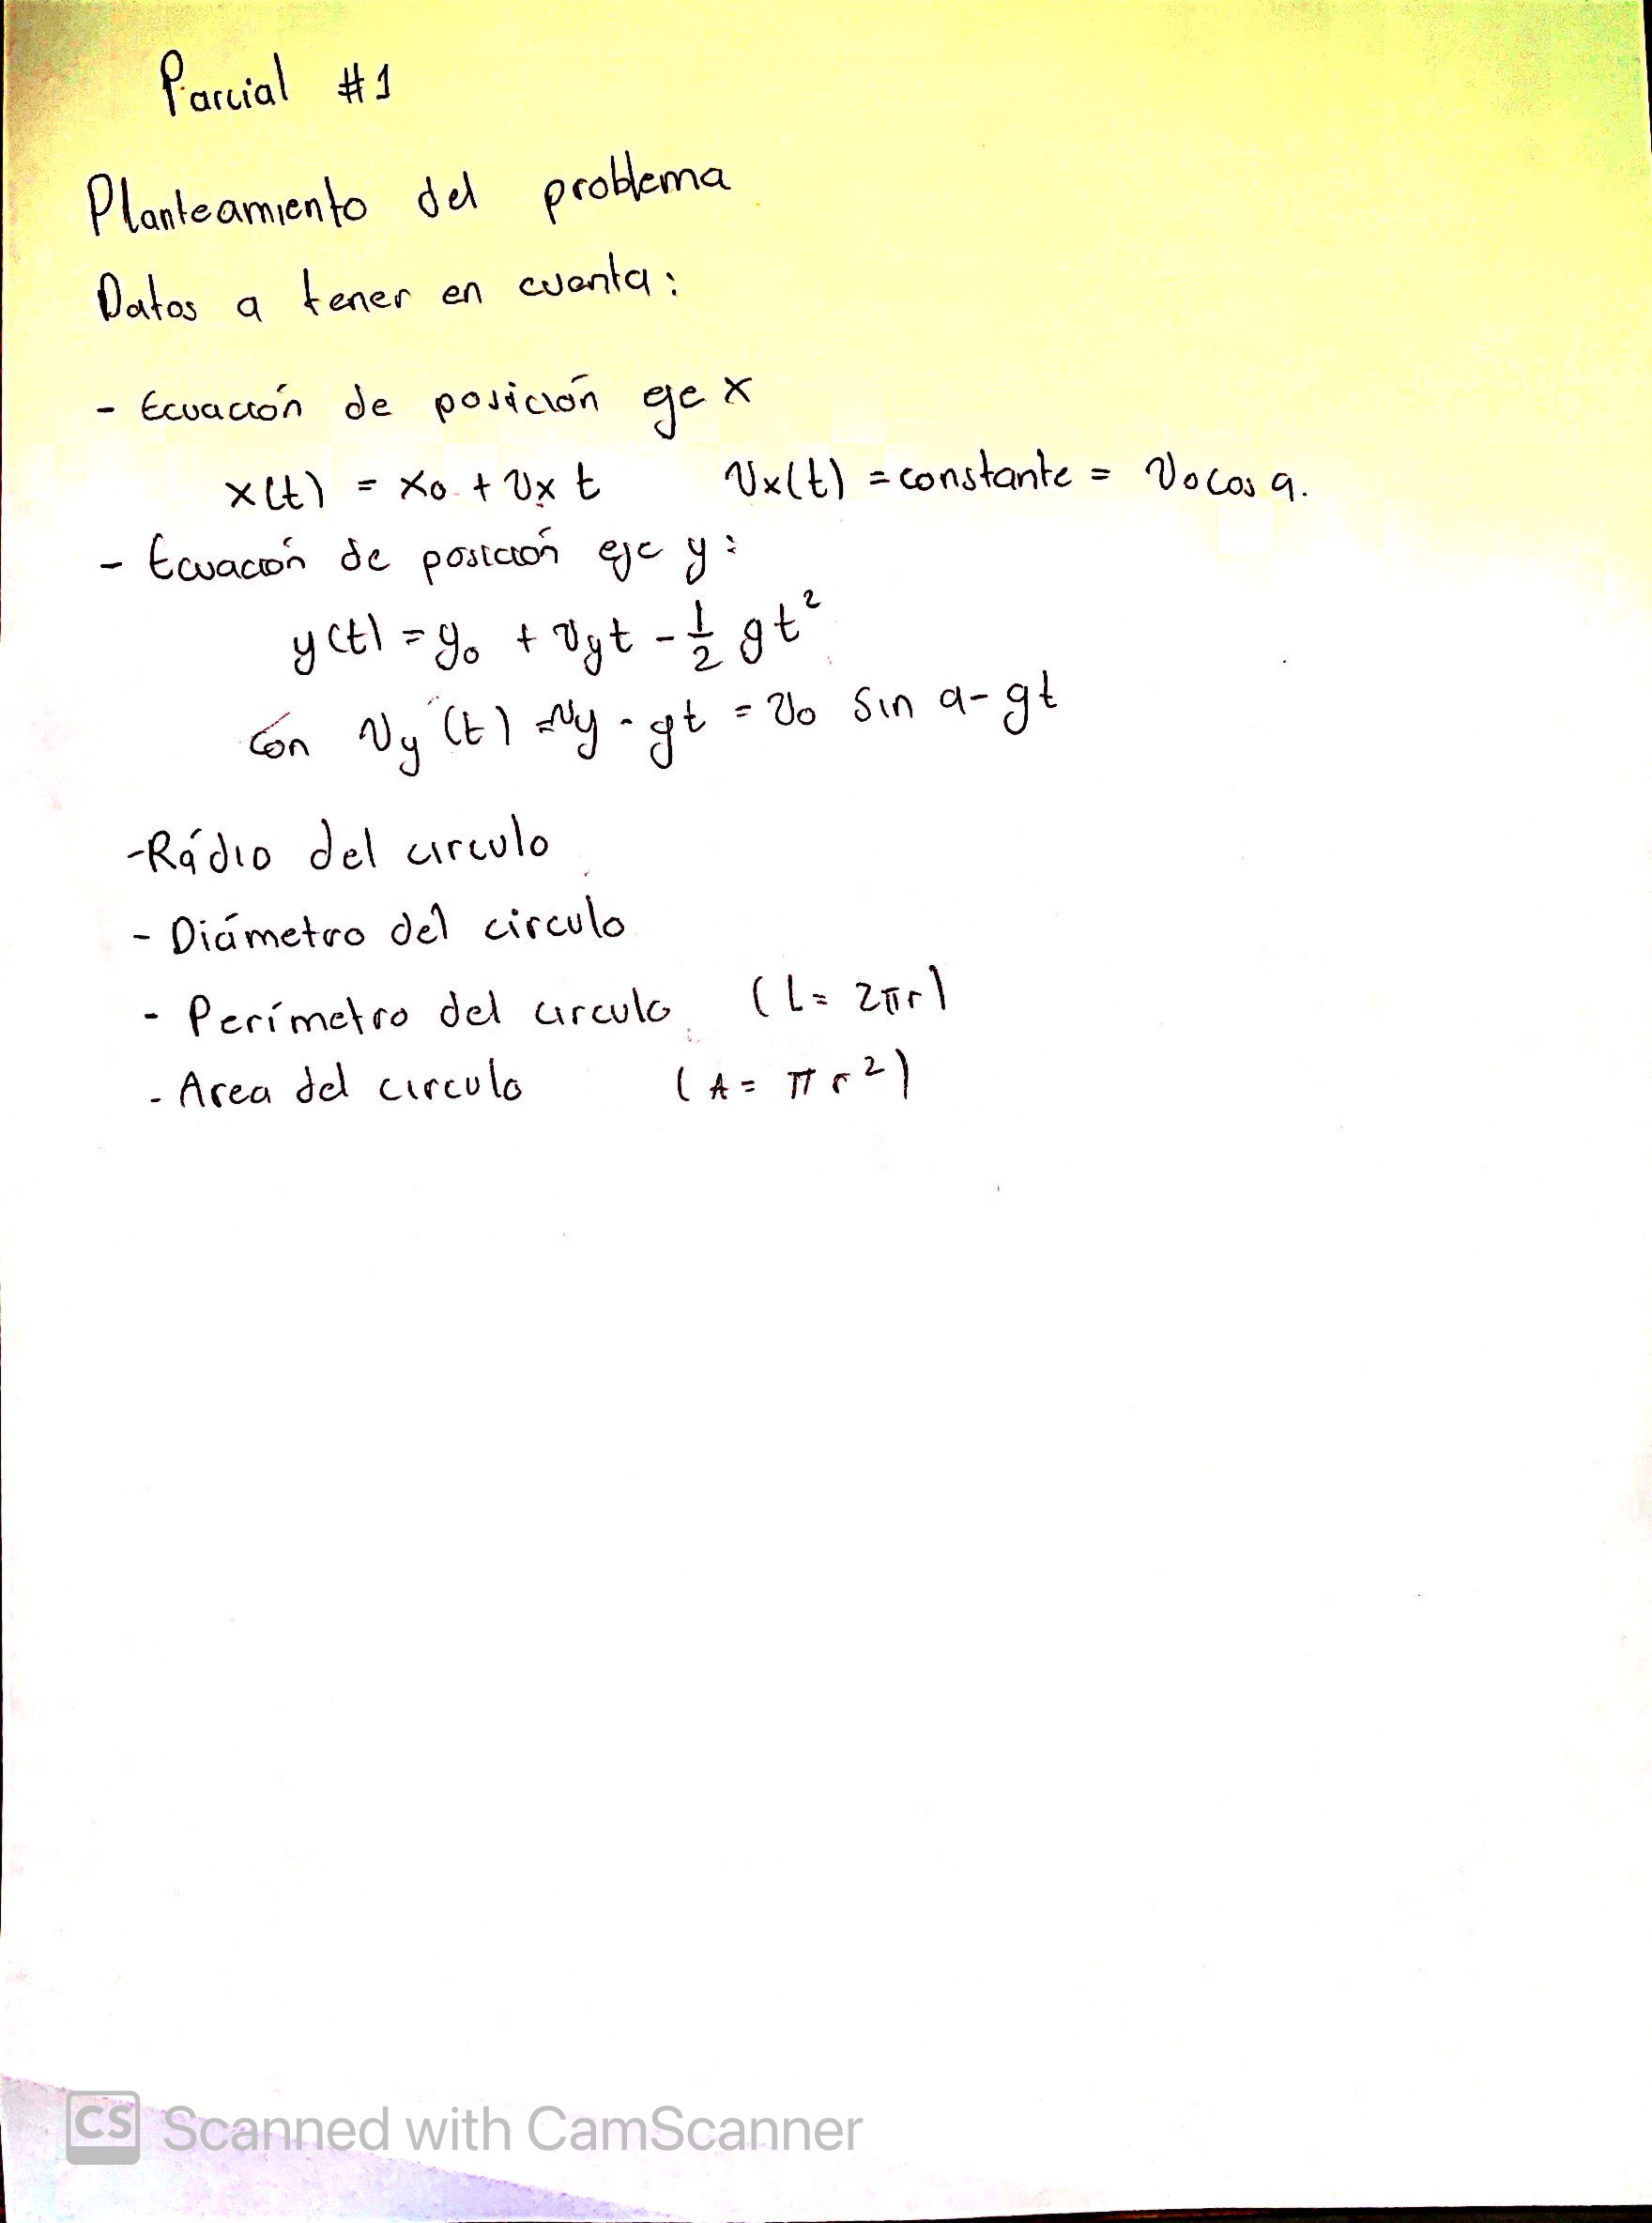 Parcial #1
Planteamiento del problema
Datos a tener en cuenta:
- Ecuación de posición eje x
x(t) = x0 + vx t   vx(t) = constante = v0 cos a.
- Ecuación de posición eje y:
y(t) = y₀ + vyt - 1/2 gt²
Con vy(t) = vy - gt = v0 sin a - gt
- Rádio del circulo
- Diámetro del circulo
- Perímetro del circulo (L = 2πr)
- Area del circulo (A = πr²)
CS Scanned with CamScanner